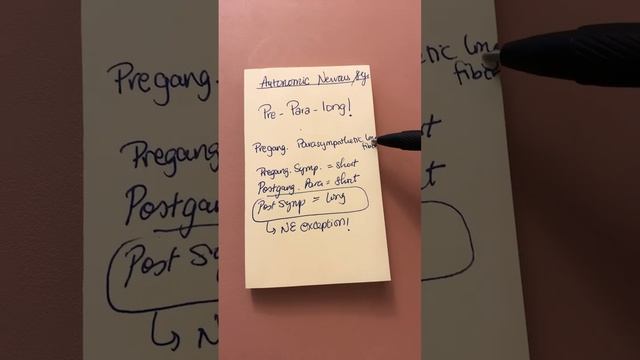 Autonomic Nervous Sys
Pre - Para - long!
Pregang. Parasympathetic long fiber
Pregang. Symp. = short
Postgang. Para = short
Post Symp = long
↳ NE exception!